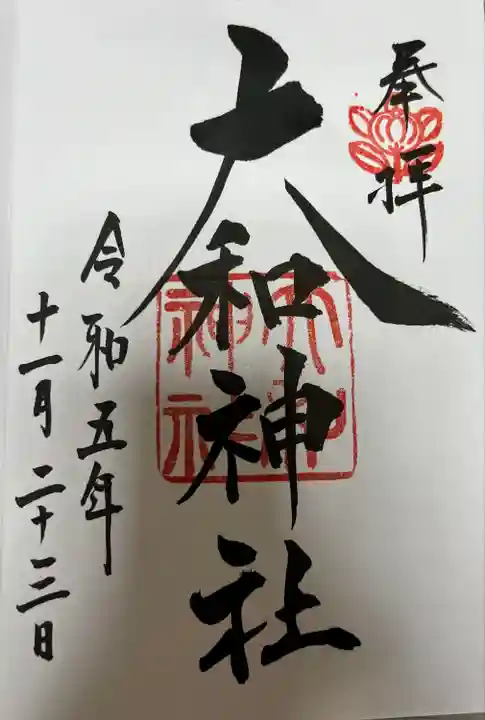 奉拝
大和神社
大和
神社
令和五年
十一月二十三日